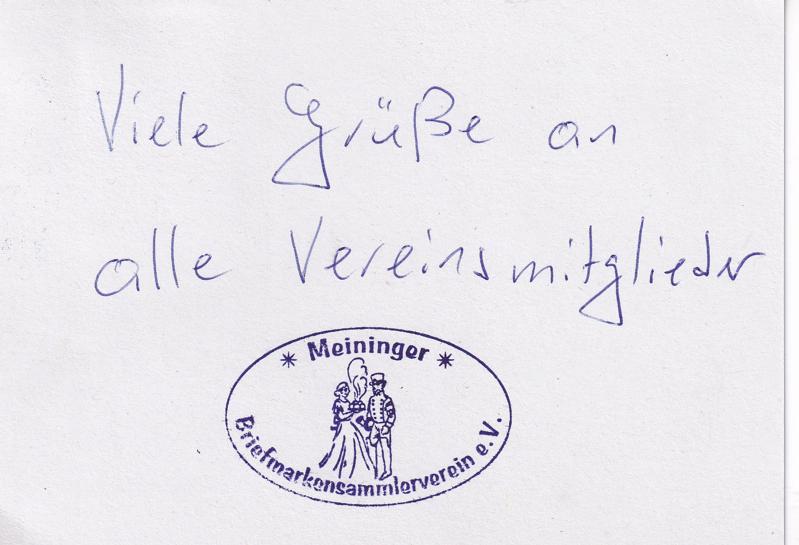 Viele Grüße an
alle Vereinsmitglieder
* Meininger *
Briefmarkensammlerverein e.V.